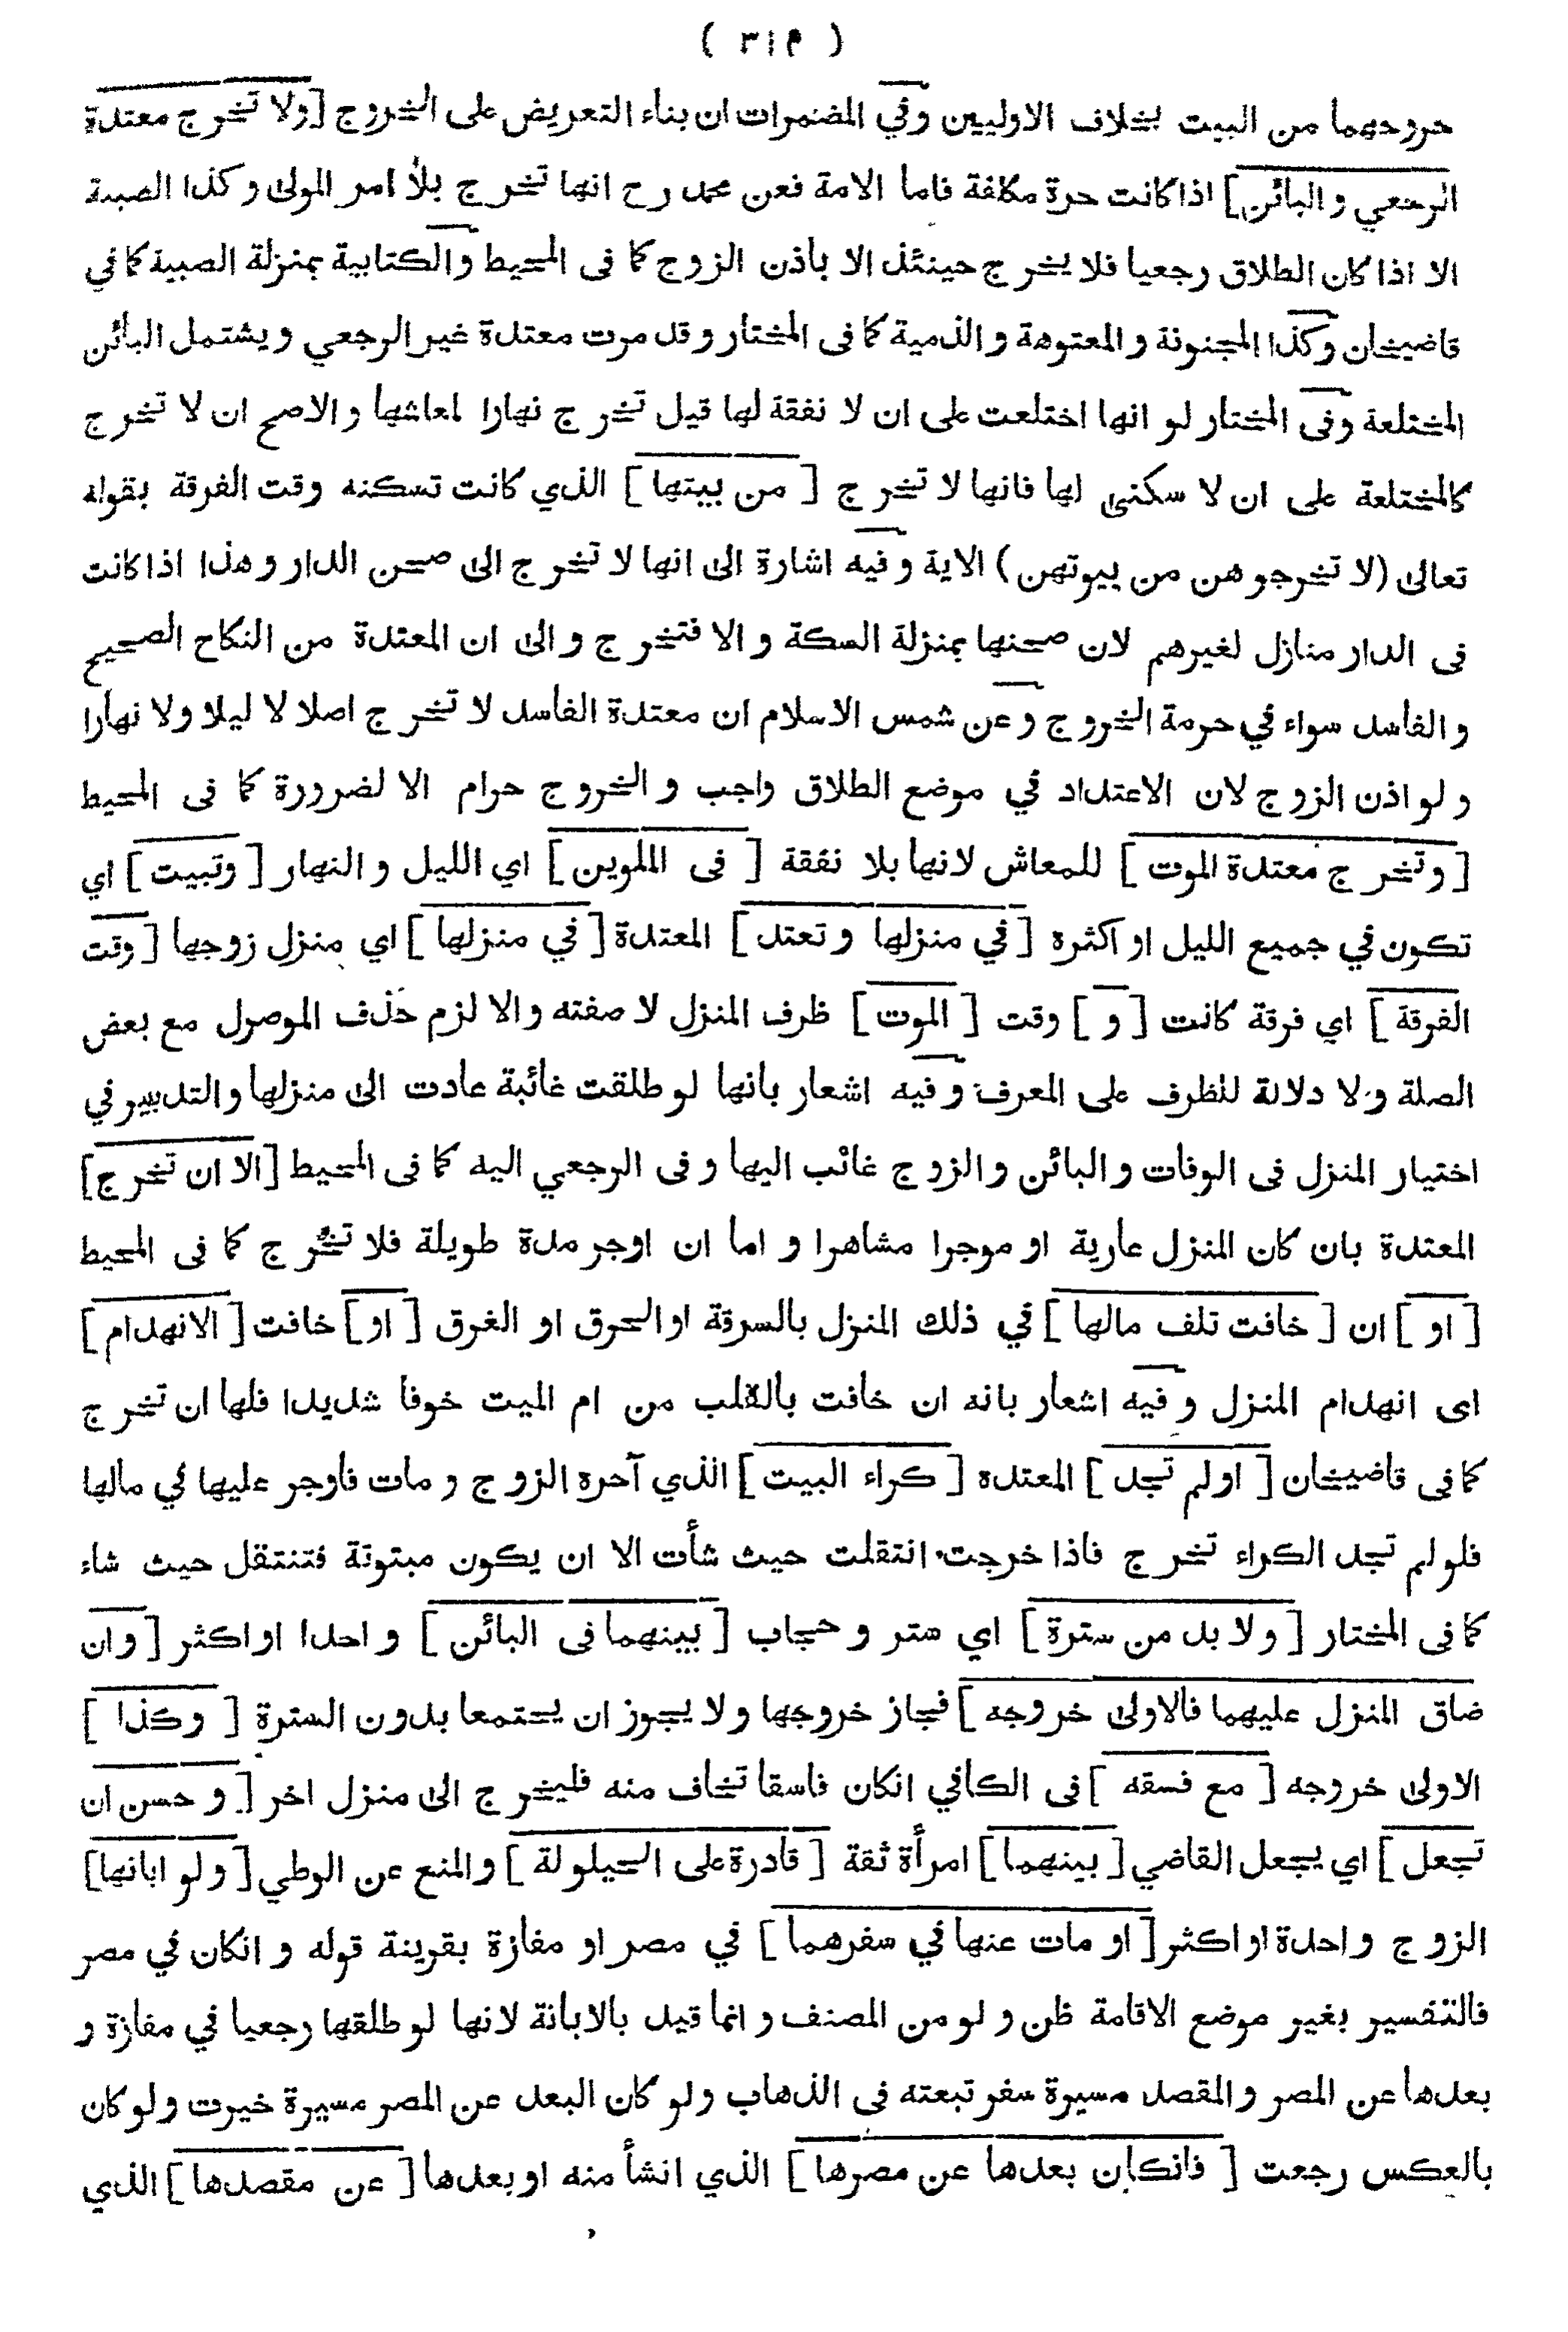 ( ٣١٤ )
خروجهما من البيت بخلاف الاوليين وفي المضمرات ان بناء التعريض على الخروج [ولا تخرج معتدة
الرجعي والبائن] اذا كانت حرة مكلفة فاما الامة فعن محمد رح انها تخرج بلا امر المولى وكذا الصبية
الا اذا كان الطلاق رجعيا فلا يخرج حينئذ الا باذن الزوج كما فى المحيط والكتابية بمنزلة الصبية كما في
قاضيخان وكذا المجنونة والمعتوهة والذمية كما فى المختار وقد مرت معتدة غير الرجعي ويشتمل البائن
المختلعة وفى المختار لو انها اختلعت على ان لا نفقة لها قيل تخرج نهارا لمعاشها والاصح ان لا تخرج
كالمختلعة على ان لا سكنى لها فانها لا تخرج [من بيتها] الذي كانت تسكنه وقت الفرقة بقوله
تعالى (لا تخرجوهن من بيوتهن) الاية وفيه اشارة الى انها لا تخرج الى صحن الدار وهذا اذا كانت
فى الدار منازل لغيرهم لان صحنها بمنزلة السكة والا فتخرج والى ان المعتدة من النكاح الصحيح
والفاسد سواء في حرمة الخروج وعن شمس الاسلام ان معتدة الفاسد لا تخرج اصلا لا ليلا ولا نهارا
ولو اذن الزوج لان الاعتداد في موضع الطلاق واجب والخروج حرام الا لضرورة كما فى المحيط
[وتخرج معتدة الموت] للمعاش لانها بلا نفقة [فى الملوين] اي الليل والنهار [وتبيت] اي
تكون في جميع الليل او اكثره [في منزلها وتعتد] المعتدة [في منزلها] اي منزل زوجها [وقت
الفرقة] اي فرقة كانت [و] وقت [الموت] ظرف المنزل لا صفته والا لزم حذف الموصول مع بعض
الصلة ولا دلالة للظرف على المعرف وفيه اشعار بانها لو طلقت غائبة عادت الى منزلها والتدبير في
اختيار المنزل فى الوفات والبائن والزوج غائب اليها وفى الرجعي اليه كما فى المحيط [الا ان تخرج]
المعتدة بان كان المنزل عارية او موجرا مشاهرا واما ان اوجر مدة طويلة فلا تخرج كما فى المحيط
[او] ان [خافت تلف مالها] في ذلك المنزل بالسرقة او الحرق او الغرق [او] خافت [الانهدام]
اى انهدام المنزل وفيه اشعار بانه ان خافت بالقلب من ام الميت خوفا شديدا فلها ان تخرج
كما فى قاضيخان [اولم تجد] المعتدة [كراء البيت] الذي آجره الزوج ومات فاوجر عليها في مالها
فلو لم تجد الكراء تخرج فاذا خرجت انتقلت حيث شأت الا ان يكون مبتوتة فتنتقل حيث شاء
كما فى المختار [ولا بد من سترة] اي ستر وحجاب [بينهما فى البائن] واحدا او اكثر [وان
ضاق المنزل عليهما فالاولى خروجه] فجاز خروجها ولا يجوز ان يجتمعا بدون السترة [وكذا]
الاولى خروجه [مع فسقه] فى الكافي انكان فاسقا تخاف منه فليخرج الى منزل اخر [وحسن ان
تجعل] اي يجعل القاضي [بينهما] امرأة ثقة [قادرة على الحيلولة] والمنع عن الوطي [ولو ابانها]
الزوج واحدة او اكثر [او مات عنها في سفرهما] في مصر او مفازة بقرينة قوله وانكان في مصر
فالتفسير بغير موضع الاقامة ظن ولو من المصنف وانما قيد بالابانة لانها لو طلقها رجعيا في مفازة و
بعدها عن المصر والمقصد مسيرة سفر تبعته فى الذهاب ولو كان البعد عن المصر مسيرة خيرت ولو كان
بالعكس رجعت [فانكان بعدها عن مصرها] الذي انشأ منه او بعدها [عن مقصدها] الذي